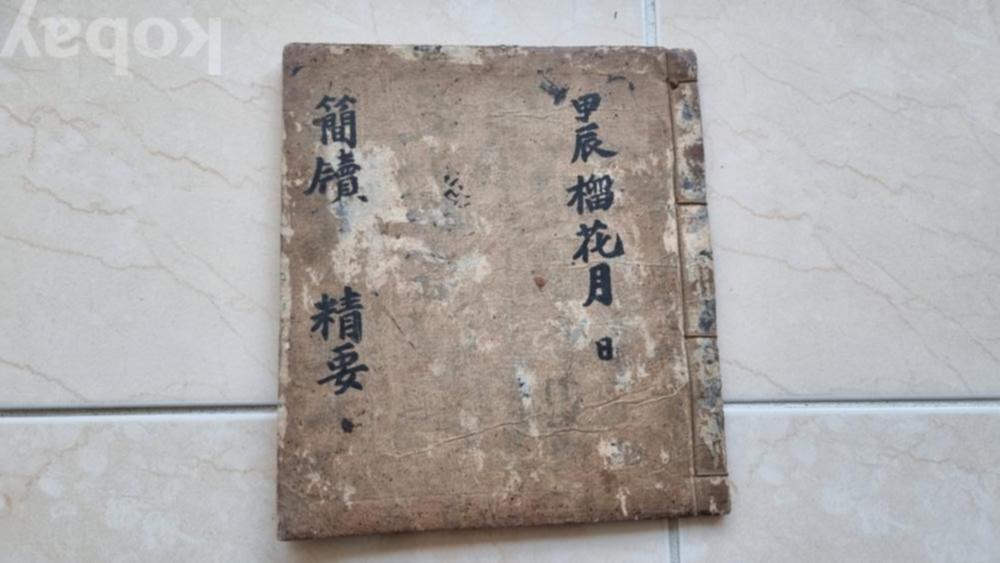 甲辰榴花月 日
簡牘 精要
kobay